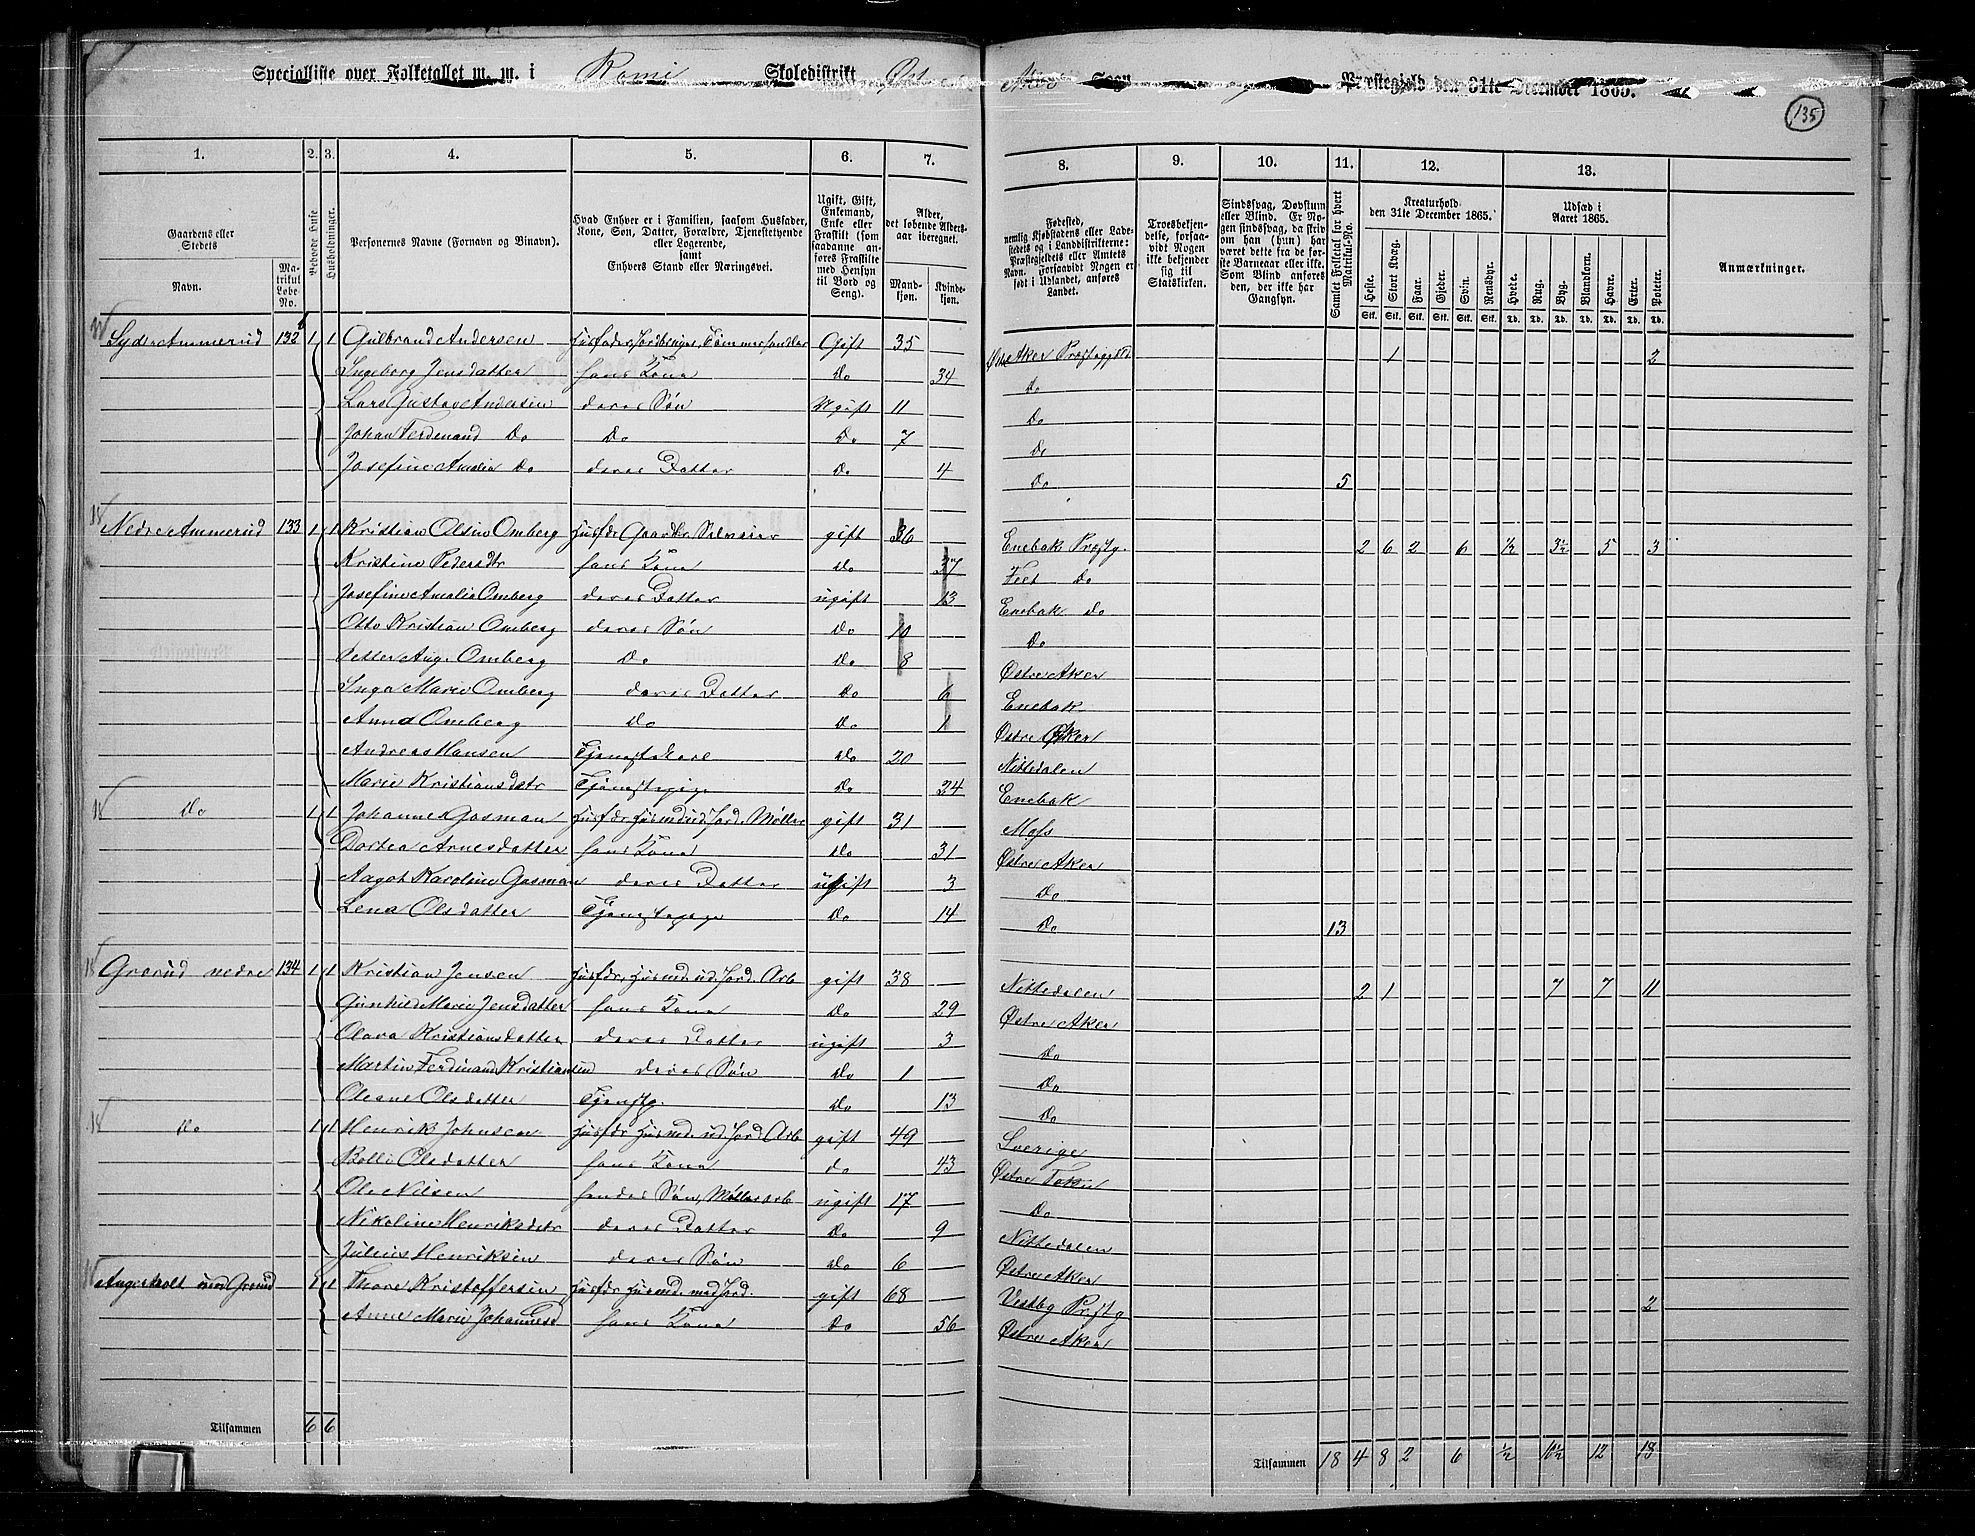 Specialliste over Folketallet m. m. i Romi Skoledistrikt Østre Aker Sogn Præstegjeld den 31te December 1865.
135
1. 2. 3. 4. 5. 6. 7. 8. 9. 10. 11. 12. 13.
Gaardens eller Stedets Navn.
Matrikul Løbe-No.
Beboede Huse
Husholdninger.
Personernes Navne (Fornavn og Binavn).
Hvad Enhver er i Familien, saasom Husfader, Kone, Søn, Datter, Forældre, Tjenestetyende eller Logerende, samt Enhvers Stand eller Næringsvei.
Ugift, Gift, Enkemand, Enke eller Fraskilt (som saadanne anføres Fraskilte med Hensyn til Bord og Seng).
Alder, det løbende Aldersaar iberegnet.
Mandkjøn. Kvindekjøn.
Fødested, nemlig Kjøbstadens eller Ladestedets og i Landdistrikterne: Præstegjeldets eller Amtets Navn. Forsaavidt Nogen er født i Udlandet, anføres Landet.
Troesbekjendelse, forsaavidt Nogen ikke bekjender sig til Statskirken.
Sindssvag, Døvstum eller Blind. Er Nogen sindssvag, da skriv om han (hun) har været dette fra de første Barneaar eller ikke. Som Blind anføres den, der ikke har Gangsyn.
Samlet Folketal for hvert Matrikul-No.
Kreaturhold den 31te December 1865.
Heste. Stort Kvæg. Faar. Gjeder. Svin. Rensdyr.
Stk. Stk. Stk. Stk. Stk. Stk.
Udsæd i Aaret 1865.
Hvede. Rug. Byg. Blandkorn. Havre. Erter. Poteter.
Td. Td. Td. Td. Td. Td. Td.
Anmærkninger.
Sydre Ammerud 132 1 1 Gulbrand Andersen Husfader Jordbruger, Tømmerhandler Gift 35 Østre Aker Præstegjeld 1 2
Ingeborg Jensdatter hans Kone Do 34 Do
Lars Gustav Andersen deres Søn Ugift 11 Do
Johan Ferdinand Do Do Do 7 Do
Josefine Amalia Do deres Datter Do 4 Do 5
Nedre Ammerud 133 1 1 Kristian Olsen Omberg Husfdr Gaardbr Selveier gift 36 Enebak Præstg. 2 6 2 6 ½ 3½ 5 3
Kristine Pedersdtr hans Kone Do 37 Feet Do
Josefine Amalia Omberg deres Datter ugift 13 Enebak do
Otto Kristian Omberg deres Søn Do 10 Do
Petter Aug. Omberg Do Do 8 Østre Aker
Inga Marie Omberg deres Datter Do 6 Enebak
Anna Omberg Do Do 1 Østre Aker
Andreas Hansen Tjenestekarl Do 20 Nittedalen
Marie Kristiansdatr Tjenestepige Do 24 Enebak
Do 1 1 Johannes Gasman Husfdr Husmd ud. Jord. Møller gift 31 Moss
Dortea Arnesdatter hans Kone Do 31 Østre Aker
Aagot Karoline Gasman deres Datter ugift 3 Do
Lena Olsdatter Tjenestepige Do 14 Do 13
Grorud nedre 134 1 1 Kristian Jensen Husfdr. Husmd. ud. Jord. Arb gift 38 Nittedalen 2 1 7 7 11
Gunhilde Marie Jensdatter hans Kone Do 29 Østre Aker
Olava Kristiansdatter deres Datter ugift 3 Do
Martin Ferdinand Kristiansen deres Søn Do 1 Do
Oleane Olsdatter Tjenestp. Do 13 Do
Do 1 1 Henrik Johnsen Husfdr Husmd. ud. Jord. Arb gift 49 Sverige
Bolle Olsdatter hans Kone do 43 Østre Toten
Ole Nilsen hendes Søn, Møllerarb ugift 17 Do
Nikoline Henriksdatr deres Datter Do 9 Nittedalen
Julius Henriksen deres Søn do 6 Østre Aker
Angerholt und Grorud 1 1 Thore Kristoffersen Husfdr Husmd. med Jord. gift 68 Vestby Præstg 2
Anne Marie Johannesd hans Kone Do 56 Østre Aker
Tilsammen 6 6
Tilsammen 18 4 8 2 6 ½ 10½ 12 18